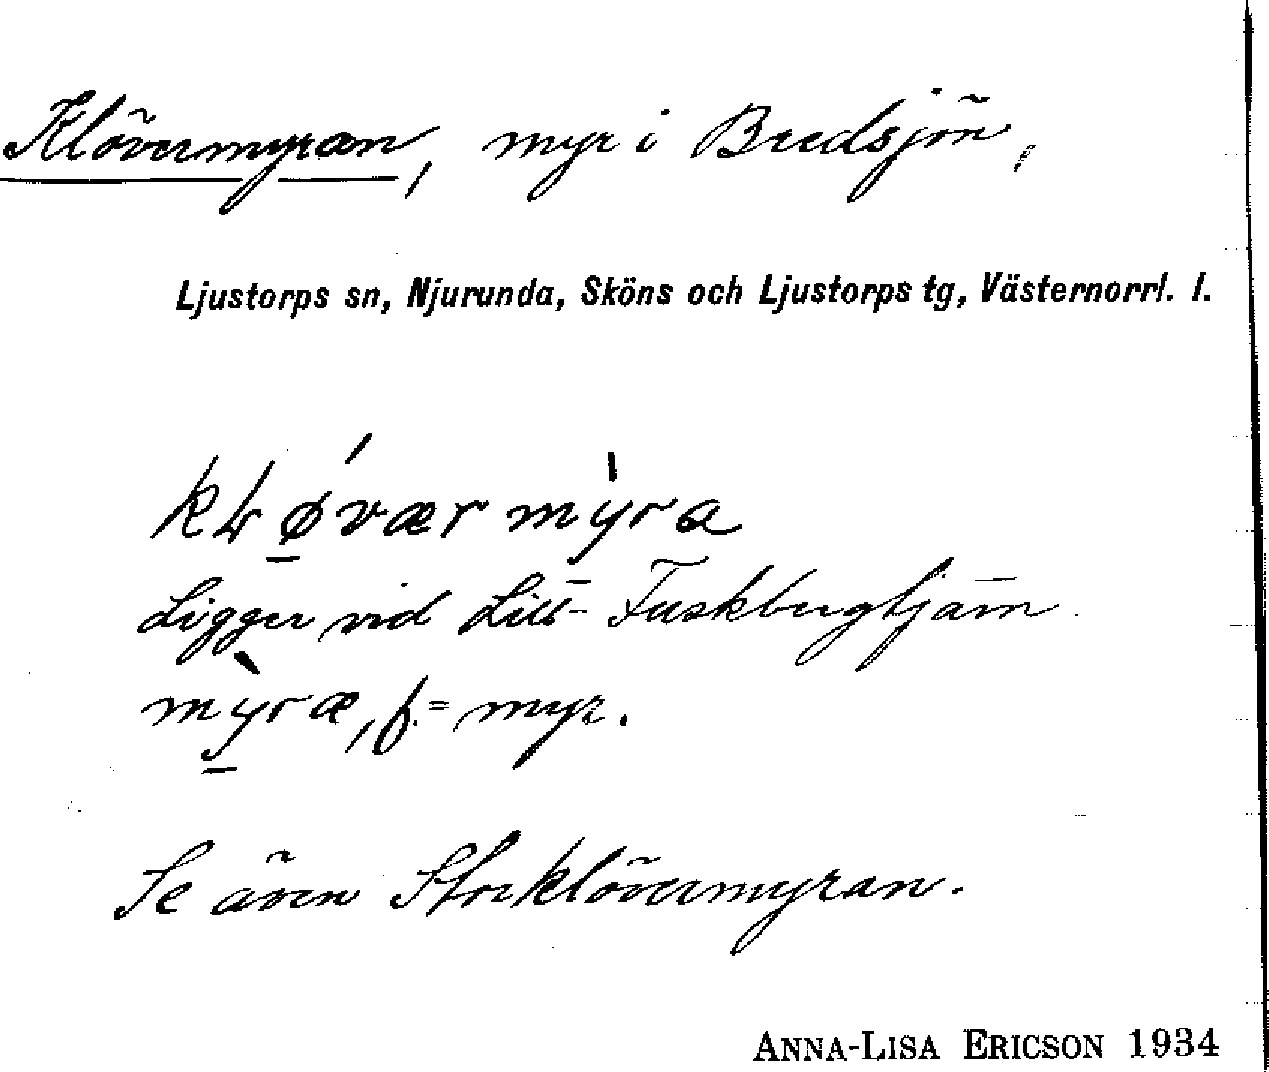 Klövermyran, myr i Bredsjön,
Ljustorps sn, Njurunda, Sköns och Ljustorps tg, Västernorrl. l.
kḷøvær mỳra
Ligger vid Lill-Fuskbergtjärn
mỳræ, f. = myr.
Se även Storklövermyran.
ANNA-LISA ERICSON 1934